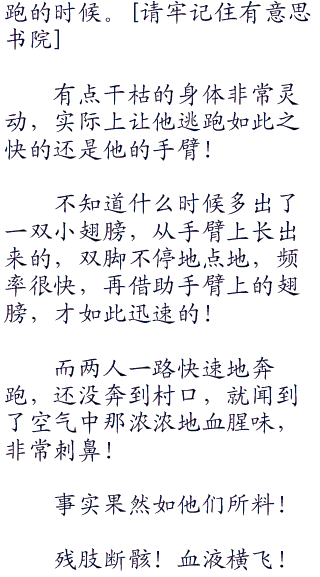 跑的时候。[请牢记住有意思
书院]
有点干枯的身体非常灵
动，实际上让他逃跑如此之
快的还是他的手臂！
不知道什么时候多出了
一双小翅膀，从手臂上长出
来的，双脚不停地点地，频
率很快，再借助手臂上的翅
膀，才如此迅速的！
而两人一路快速地奔
跑，还没奔到村口，就闻到
了空气中那浓浓地血腥味，
非常刺鼻！
事实果然如他们所料！
残肢断骸！血液横飞！